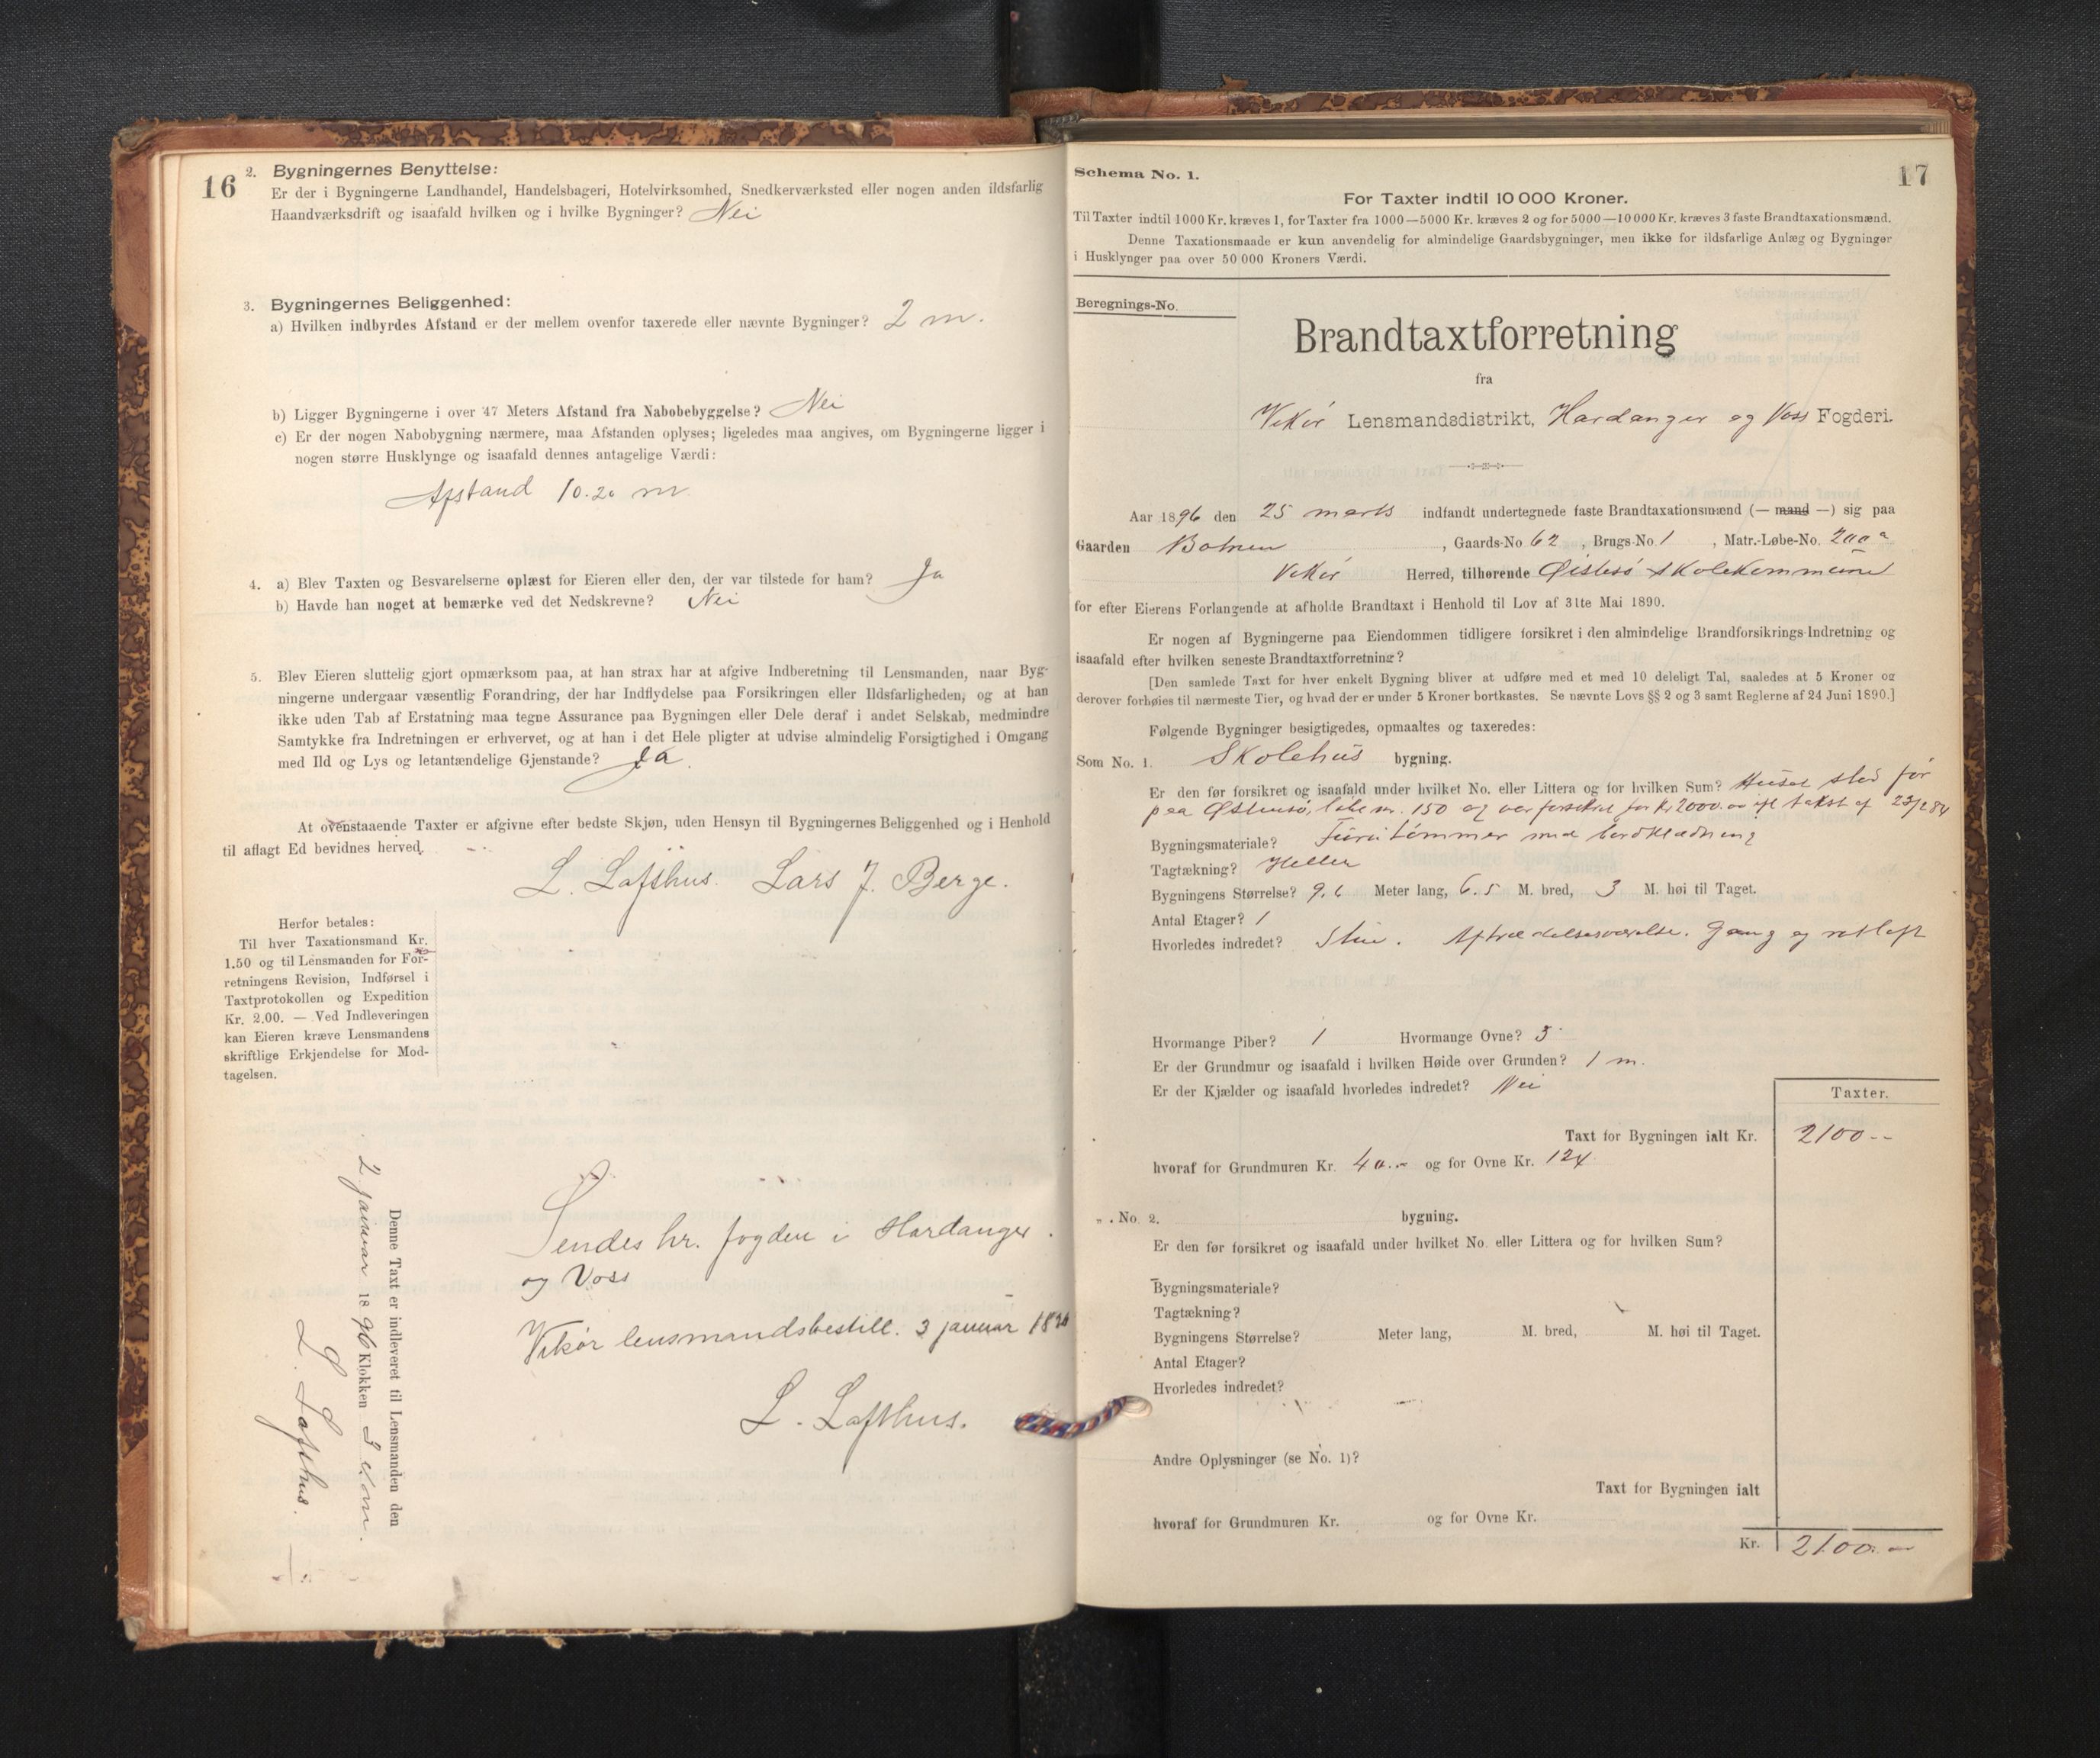 16
2. Bygningernes Benyttelse:
Er der i Bygningerne Landhandel, Handelsbageri, Hotelvirksomhed, Snedkerværksted eller nogen anden ildsfarlig
Haandværksdrift og isaafald hvilken og i hvilke Bygninger? Nei
3. Bygningernes Beliggenhed:
a) Hvilken indbyrdes Afstand er der mellem ovenfor taxerede eller nævnte Bygninger? 2 m.
b) Ligger Bygningerne i over 47 Meters Afstand fra Nabobebyggelse? Nei
c) Er der nogen Nabobygning nærmere, maa Afstanden oplyses; ligeledes maa angives, om Bygningerne ligger i
nogen større Husklynge og isaafald dennes antagelige Værdi:
Afstand 10.20 m
4. a) Blev Taxten og Besvarelserne oplæst for Eieren eller den, der var tilstede for ham? Ja
b) Havde han noget at bemærke ved det Nedskrevne? Nei
5. Blev Eieren sluttelig gjort opmærksom paa, at han strax har at afgive Indberetning til Lensmanden, naar Byg-
ningerne undergaar væsentlig Forandring, der har Indflydelse paa Forsikringen eller Ildsfarligheden, og at han
ikke uden Tab af Erstatning maa tegne Assurance paa Bygningen eller Dele deraf i andet Selskab, medmindre
Samtykke fra Indretningen er erhvervet, og at han i det Hele pligter at udvise almindelig Forsigtighed i Omgang
med Ild og Lys og letantændelige Gjenstande? Ja.
At ovenstaaende Taxter er afgivne efter bedste Skjøn, uden Hensyn til Bygningernes Beliggenhed og i Henhold
til aflagt Ed bevidnes herved.
L. Lofthus. Lars J. Berge.
Herfor betales:
Til hver Taxationsmand Kr.
1.50 og til Lensmanden for For-
retningens Revision, Indførsel i
Taxtprotokollen og Expedition
Kr. 2.00. — Ved Indleveringen
kan Eieren kræve Lensmandens
skriftlige Erkjendelse for Mod-
tagelsen.
Denne Taxt er indleveret til Lensmanden den
2 januar 1896 Klokken
L. Lofthus.
Sendes hr. fogden i Hardanger
og Voss
Vikør lensmandsbestill. 3 januar 1896
L. Lofthus.
Schema No. 1.
17
For Taxter indtil 10 000 Kroner.
Til Taxter indtil 1000 Kr. kræves 1, for Taxter fra 1000—5000 Kr. kræves 2 og for 5000—10 000 Kr. kræves 3 faste Brandtaxationsmænd.
Denne Taxationsmaade er kun anvendelig for almindelige Gaardsbygninger, men ikke for ildsfarlige Anlæg og Bygninger
i Husklynger paa over 50 000 Kroners Værdi.
Beregnings-No.
Brandtaxtforretning
fra
Vikør Lensmandsdistrikt, Hardanger og Voss Fogderi.
Aar 1896 den 25 marts indfandt undertegnede faste Brandtaxationsmænd (— mand —) sig paa
Gaarden Botnen, Gaards-No 62, Brugs-No. 1, Matr.-Løbe-No. 200 a
Vikør Herred, tilhørende Østesø skolekommune
for efter Eierens Forlangende at afholde Brandtaxt i Henhold til Lov af 31te Mai 1890.
Er nogen af Bygningerne paa Eiendommen tidligere forsikret i den almindelige Brandforsikrings-Indretning og
isaafald efter hvilken seneste Brandtaxtforretning?
[Den samlede Taxt for hver enkelt Bygning bliver at udføre med et med 10 deleligt Tal, saaledes at 5 Kroner og
derover forhøies til nærmeste Tier, og hvad der er under 5 Kroner bortkastes. Se nævnte Lovs §§ 2 og 3 samt Reglerne af 24 Juni 1890.]
Følgende Bygninger besigtigedes, opmaaltes og taxeredes:
Som No. 1. Skolehus bygning.
Er den før forsikret og isaafald under hvilket No. eller Littera og for hvilken Sum? Huset stod før
paa Østensø, løbe nr. 150 og var forsikret for Kr 2000.00 eft takst af 23/2 84
Bygningsmateriale? Furutømmer med bordklædning
Tagtækning? Heller
Bygningens Størrelse? 9.6 Meter lang, 6.5 M. bred, 3 M. høi til Taget.
Antal Etager? 1
Hvorledes indredet? Stue. Aftrædelsesværelse. Gang og
Hvormange Piber? 1 Hvormange Ovne? 3
Er der Grundmur og isaafald i hvilken Høide over Grunden? 1 m.
Er der Kjælder og isaafald hvorledes indredet? Nei
Taxter.
Taxt for Bygningen ialt Kr. 2100 --
hvoraf for Grundmuren Kr. 40.- og for Ovne Kr. 124
„ . No. 2. bygning.
Er den før forsikret og isaafald under hvilket No. eller Littera og for hvilken Sum?
Bygningsmateriale?
Tagtækning?
Bygningens Størrelse? Meter lang, M. bred, M. høi til Taget.
Antal Etager?
Hvorledes indredet?
Andre Oplysninger (se No. 1)?
Taxt for Bygningen ialt
hvoraf for Grundmuren Kr. og for Ovne Kr.
Kr. 2100.-